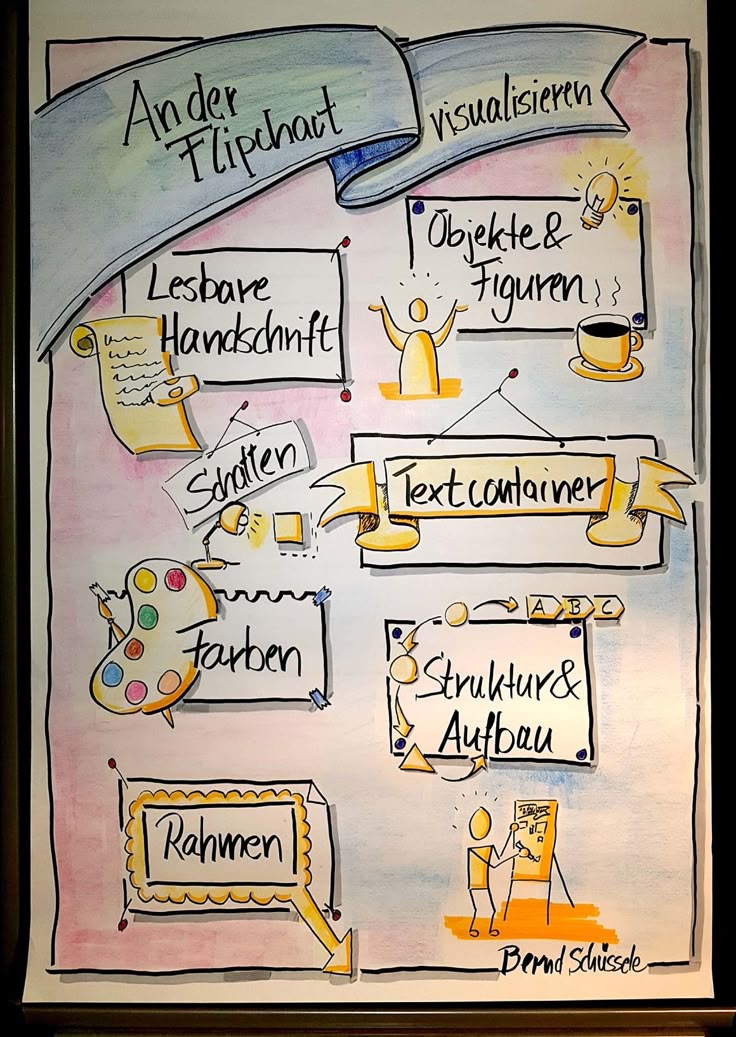 An der
Flipchart
visualisieren
Objekte &
Figuren
Lesbare
Handschrift
Schatten
Textcontainer
A B C
Farben
Struktur &
Aufbau
Rahmen
Bernd Schüssele